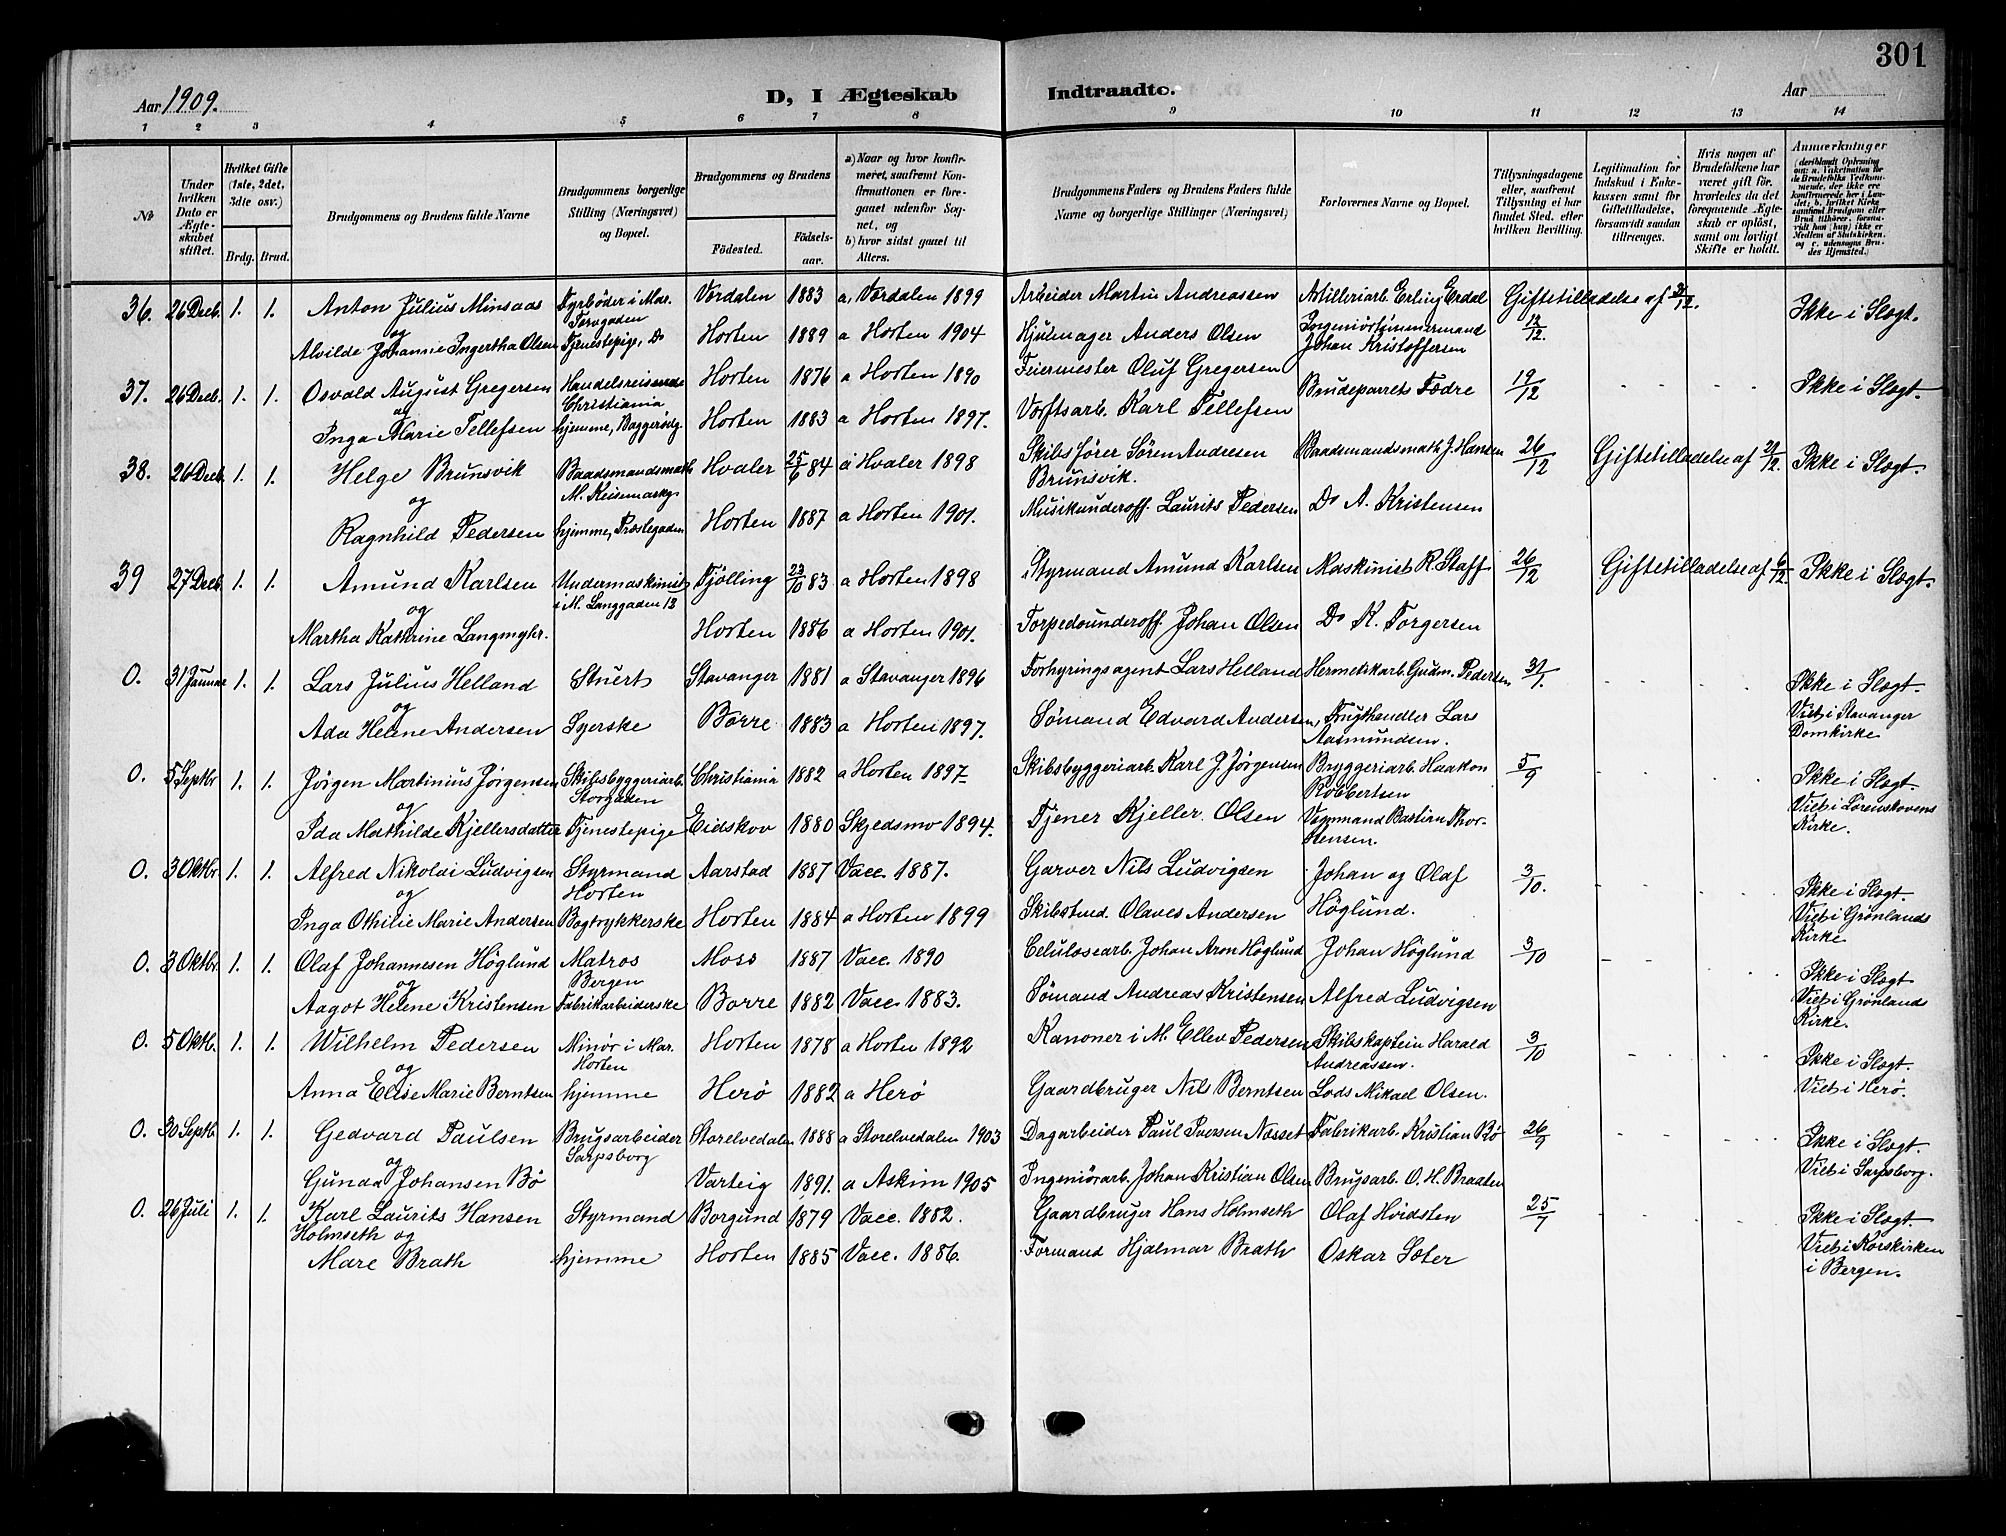 301
Aar 1909.
D, I Ægteskab Indtraadte.
Aar
1 2 3 4 5 6 7 8 9 10 11 12 13 14
№
Under hvilken Dato er Ægteskabet stiftet.
Hvilket Gifte (1ste, 2det, 3die osv.)
Brdg. Brud.
Brudgommens og Brudens fulde Navne
Brudgommens borgerlige Stilling (Næringsvei) og Bopæl.
Brudgommens og Brudens
Fødested.
Fødselsaar.
a) Naar og hvor konfirmeret, saafremt Konfirmationen er foregaaet udenfor Sognet, og
b) hvor sidst gaaet til Alters.
Brudgommens Faders og Brudens Faders fulde Navne og borgerlige Stillinger (Næringsvei)
Forlovernes Navne og Bopæl.
Tillysningsdagene eller, saafremt Tillysning ei har fundet Sted, efter hvilken Bevilling.
Legitimation for Indskud i Enkekassen samt for Giftetilladelse, forsaavidt saadan tiltrænges.
Hvis nogen af Brudefolkene har været gift før, hvorledes da det foregaaende Ægteskab er opløst, samt om lovligt Skifte er holdt.
Anmærkninger
36. 26 Decb. 1. 1. Anton Julius Minsaas Fyrbøder i Mar. Værdalen 1883 a, Værdalen 1899 Arbeider Martin Andreassen Artilleriarb. Erling Erdal Giftetilladelse af 2/12. Ikke i Slægt.
og Torvgaden Ingeniørtømmermand 12/12.
Alvilde Johannie Ingertha Olsen Tjenestepige, Do Horten 1889 a Horten 1904 Hjulmager Anders Olsen Johan Kristoffersen
37. 26 Decb. 1. 1. Osvald August Gregersen Handelsreisende Horten 1876 a Horten 1890 Feiermester Oluf Gregersen Brudeparrets Fædre 19/12 Ikke i Slægt.
og Christiania
Inga Marie Tellefsen hjemme, Baggerødg. Horten 1883 a Horten 1897. Værftsarb. Karl Tellefsen
38. 26 Decb. 1. 1. Helge Brunsvik Baadsmandsmath Hvaler 25/6 84 a Hvaler 1898 Skibsfører Søren Andresen Baadsmandsmath J. Hansen 26/12 Giftetilladelse af 20/12. Ikke i Slægt.
og M. Keisemarkg. Brunsvik.
Ragnhild Pedersen hjemme, Præstegaden Horten 1887 a Horten 1901. Musikunderoff. Laurits Pedersen Do A. Kristensen
39 27 Decb. 1. 1. Amund Karlsen Undermaskinist Tjølling 23/10 83 a Horten 1898 Styrmand Amund Karlsen Maskinist R. Staff 26/12 Giftetilladelse af 6/12. Ikke i Slægt.
og i M. Langgaden 13
Martha Kathrine Langmyhr. Horten 1886 a Horten 1901. Torpedounderoff. Johan Olsen Do K. Torgersen
0. 31 Januar 1. 1. Lars Julius Helland Stuert Stavanger 1881 a Stavanger 1896 Forhyringsagent Lars Helland Hermetikarb. Gudm. Pedersen 31/1. Ikke i Slægt.
og Viet i Stavanger
Ada Helene Andersen Syerske Borre 1883 a Horten 1897. Sømand Edvard Andersen, Frugthandler Lars Aasmundsen. Domkirke
0. 5 Septbr 1. 1. Jørgen Martinius Jørgensen Skibsbyggeriarb. Christiania 1882 a Horten 1897 Skibsbyggeriarb. Karl J. Jørgensen Bryggeriarb. Haakon 5/9 Ikke i Slægt.
og Storgaden Robbertsen Viet i Lørenskovens
Ida Mathilde Kjellersdatter Tjenestepige Eidskov 1880 Skjedsmo 1894. Tjener Kjeller Olsen Vognmand Bastian Thorstensen. Kirke.
0. 3 Oktbr 1. 1. Alfred Nikolai Ludvigsen Styrmand Aarstad 1887 Vacc. 1887. Garver Nils Ludvigsen Johan og Olaf 3/10. Ikke i Slægt.
og Horten Viet i Grønlands
Inga Othilie Marie Andersen Bogtrykkerske Horten 1884 a Horten 1899 Skibstmd. Olaves Andersen Höglund. Kirke
0. 3 Oktbr. 1. 1. Olaf Johannesen Höglund Matros Moss 1887 Vacc. 1890 Celulosearb. Johan Aron Höglund Johan Höglund 3/10 Ikke i Slægt
og Bergen Viet i Grønlands
Aagot Helene Kristensen Fabrikarbeiderske Borre 1882 Vacc. 1883. Sømand Andreas Kristensen Alfred Ludvigsen Kirke.
0. 5 Oktb. 1. 1. Wilhelm Pedersen Minør i Mar. Horten 1878 a Horten 1892 Kanoner i M. Ellev Pedersen Skibskaptein Harald 3/10 Ikke i Slægt.
og Horten Andreassen. Viet i Herø.
Anna Elise Marie Berntsen hjemme Herø 1882 a Herø Gaardbruger Nils Berntsen Lods Mikael Olsen.
0. 30 Septb. 1. 1. Gedvard Paulsen Brugsarbeider Storelvedalen 1888 a Storelvedalen 1903 Dagarbeider Paul Næsset Fabrikarb. Kristian Bø 26/9 Ikke i Slægt.
og Sarpsborg Viet i Sarpsborg.
Gunda Johansen Bø Varteig 1891. a Askim 1905 Ingeniørarb. Johan Kristian Olsen Brugsarb. O. H. Braaten
0. 26 Juli 1. 1. Karl Laurits Hansen Styrmand Borgund 1879 Vacc. 1882. Gaardbruger Hans Holmseth Olaf Hvidsten 25/7 Ikke i Slægt.
Holmseth og Viet i Korskirken
Mare Brath hjemme Horten 1885 Vacc. 1886. Formand Hjalmar Brath Oskar Sæter i Bergen.